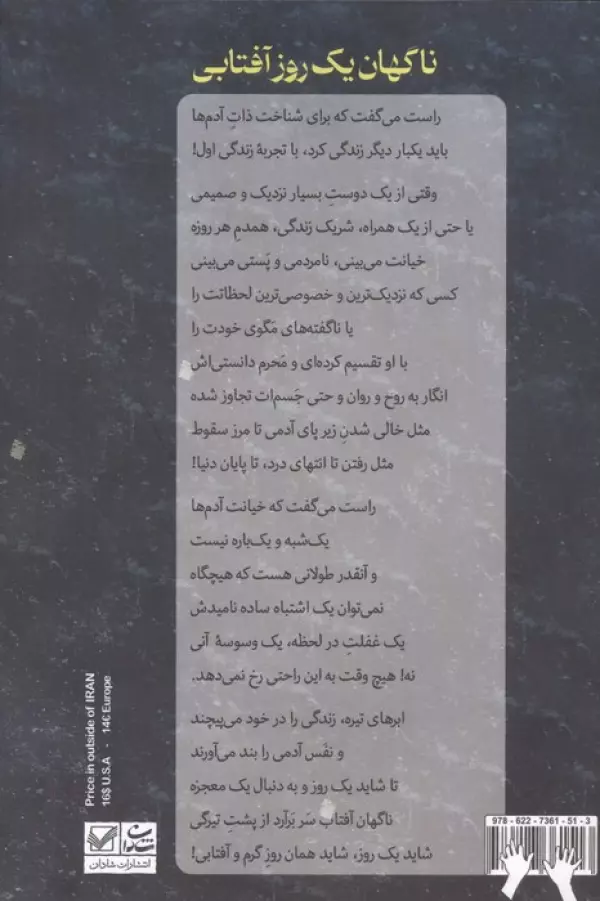 ناگهان یک روز آفتابی
راست می‌گفت که برای شناخت ذاتِ آدم‌ها
باید یکبار دیگر زندگی کرد، با تجربهٔ زندگی اول!
وقتی از یک دوستِ بسیار نزدیک و صمیمی
یا حتی از یک همراه، شریک زندگی، همدمِ هر روزه
خیانت می‌بینی، نامردمی و پَستی می‌بینی
کسی که نزدیک‌ترین و خصوصی‌ترین لحظاتت را
یا ناگفته‌های مَگوی خودت را
با او تقسیم کرده‌ای و مَحرم دانستی‌اش
انگار به روح و روان و حتی جَسم‌ات تجاوز شده
مثل خالی شدنِ زیر پای آدمی تا مرز سقوط
مثل رفتن تا انتهای درد، تا پایان دنیا!
راست می‌گفت که خیانت آدم‌ها
یک‌شبه و یک‌باره نیست
و آنقدر طولانی هست که هیچگاه
نمی‌توان یک اشتباه ساده نامیدش
یک غفلتِ در لحظه، یک وسوسهٔ آنی
نه! هیچ وقت به این راحتی رخ نمی‌دهد.
ابرهای تیره، زندگی را در خود می‌پیچند
و نفَس آدمی را بند می‌آورند
تا شاید یک روز و به دنبال یک معجزه
ناگهان آفتاب سَر بَرآرد از پشتِ تیرگی
شاید یک روز، شاید همان روزِ گرم و آفتابی!
Price in outside of IRAN
16$ U.S.A - 14€ Europe
شادان
انتشارات شادان
978 - 622 - 7361 - 51 - 3